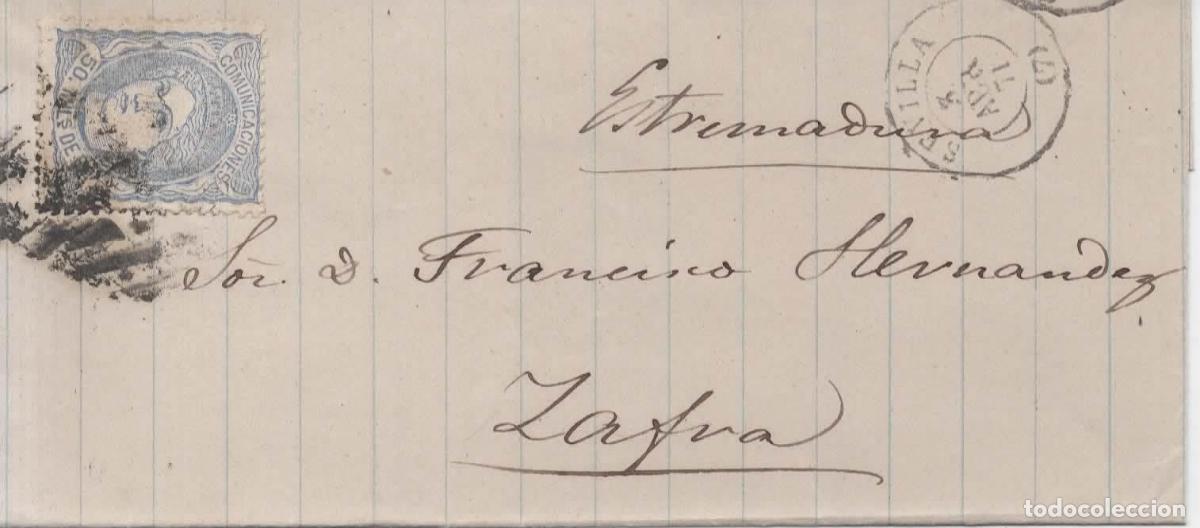 COMUNICACIONES
50. MILS DE
Estremadura
SEVILLA
4
ABR
71
(7)
Sor. D. Francisco Hernandez
Zafra
todocoleccion